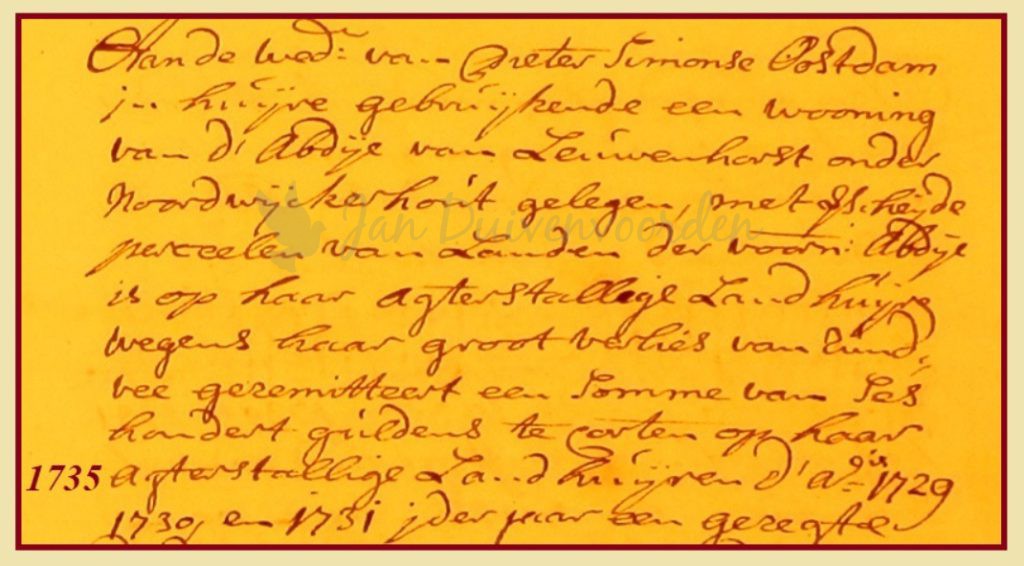 Aan de wed:e van Pieter Simonse Oostdam
in huijre gebruijkende een wooning
van d' Abdije van Leeuwenhorst onder
Noordwijckerhout gelegen, met
Jan Duivenvoorden
perceelen van Landen der voorn: Abdije
is op haar agterstallige Landhuijre
wegens haar groot verlies van Rund-
vee geremitteert een Somme van Ses
hondert guldens te corten op haar
1735 agterstallige Landhuijren d' Aº 1729
1730, en 1731 jder jaar een geregte